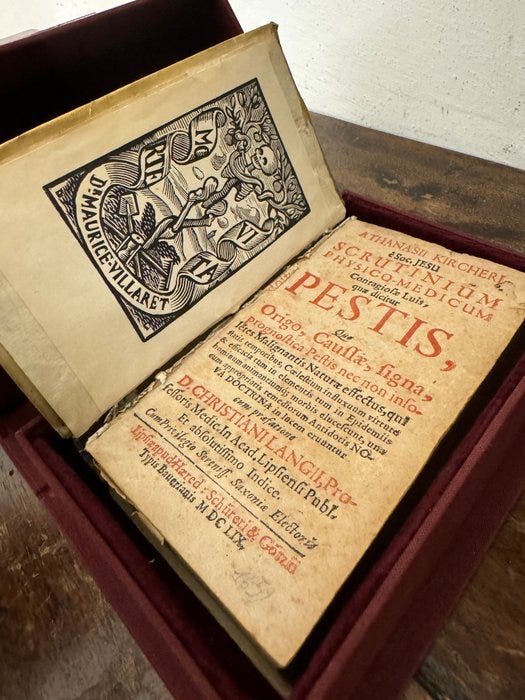 Dr MAURICE-VILLARET
MORTE
VITA
ATHANASII KIRCHERI,
è Soc. JESU
SCRUTINIUM
PHYSICO-MEDICUM
Contagiosæ Luis,
quæ dicitur
PESTIS,
Quo
Origo, Caussæ, signa,
prognostica Pestis, nec non inso-
lentes Malignantis Naturæ effectus, qui
statis temporibus, Cœlestium influxuum virtute
& efficacia, tum in elementis, tum in Epidemiis
hominum animantiumq; morbis elucescunt, una
cum appropriatis remediorum Antidotis NO-
VA DOCTRINA in lucem eruuntur.
cum præfatione
D. CHRISTIANI LANGII, Pro-
fessoris Medic. In Acad. Lipsiensi Publ.
Et absolutissimo Indice.
Cum Privilegio Sereniss. Saxoniæ Electoris
Lipsiæ, apud Hæred. Schüreri & Götzii
Typis Bauerianis MDCLIX.
1659